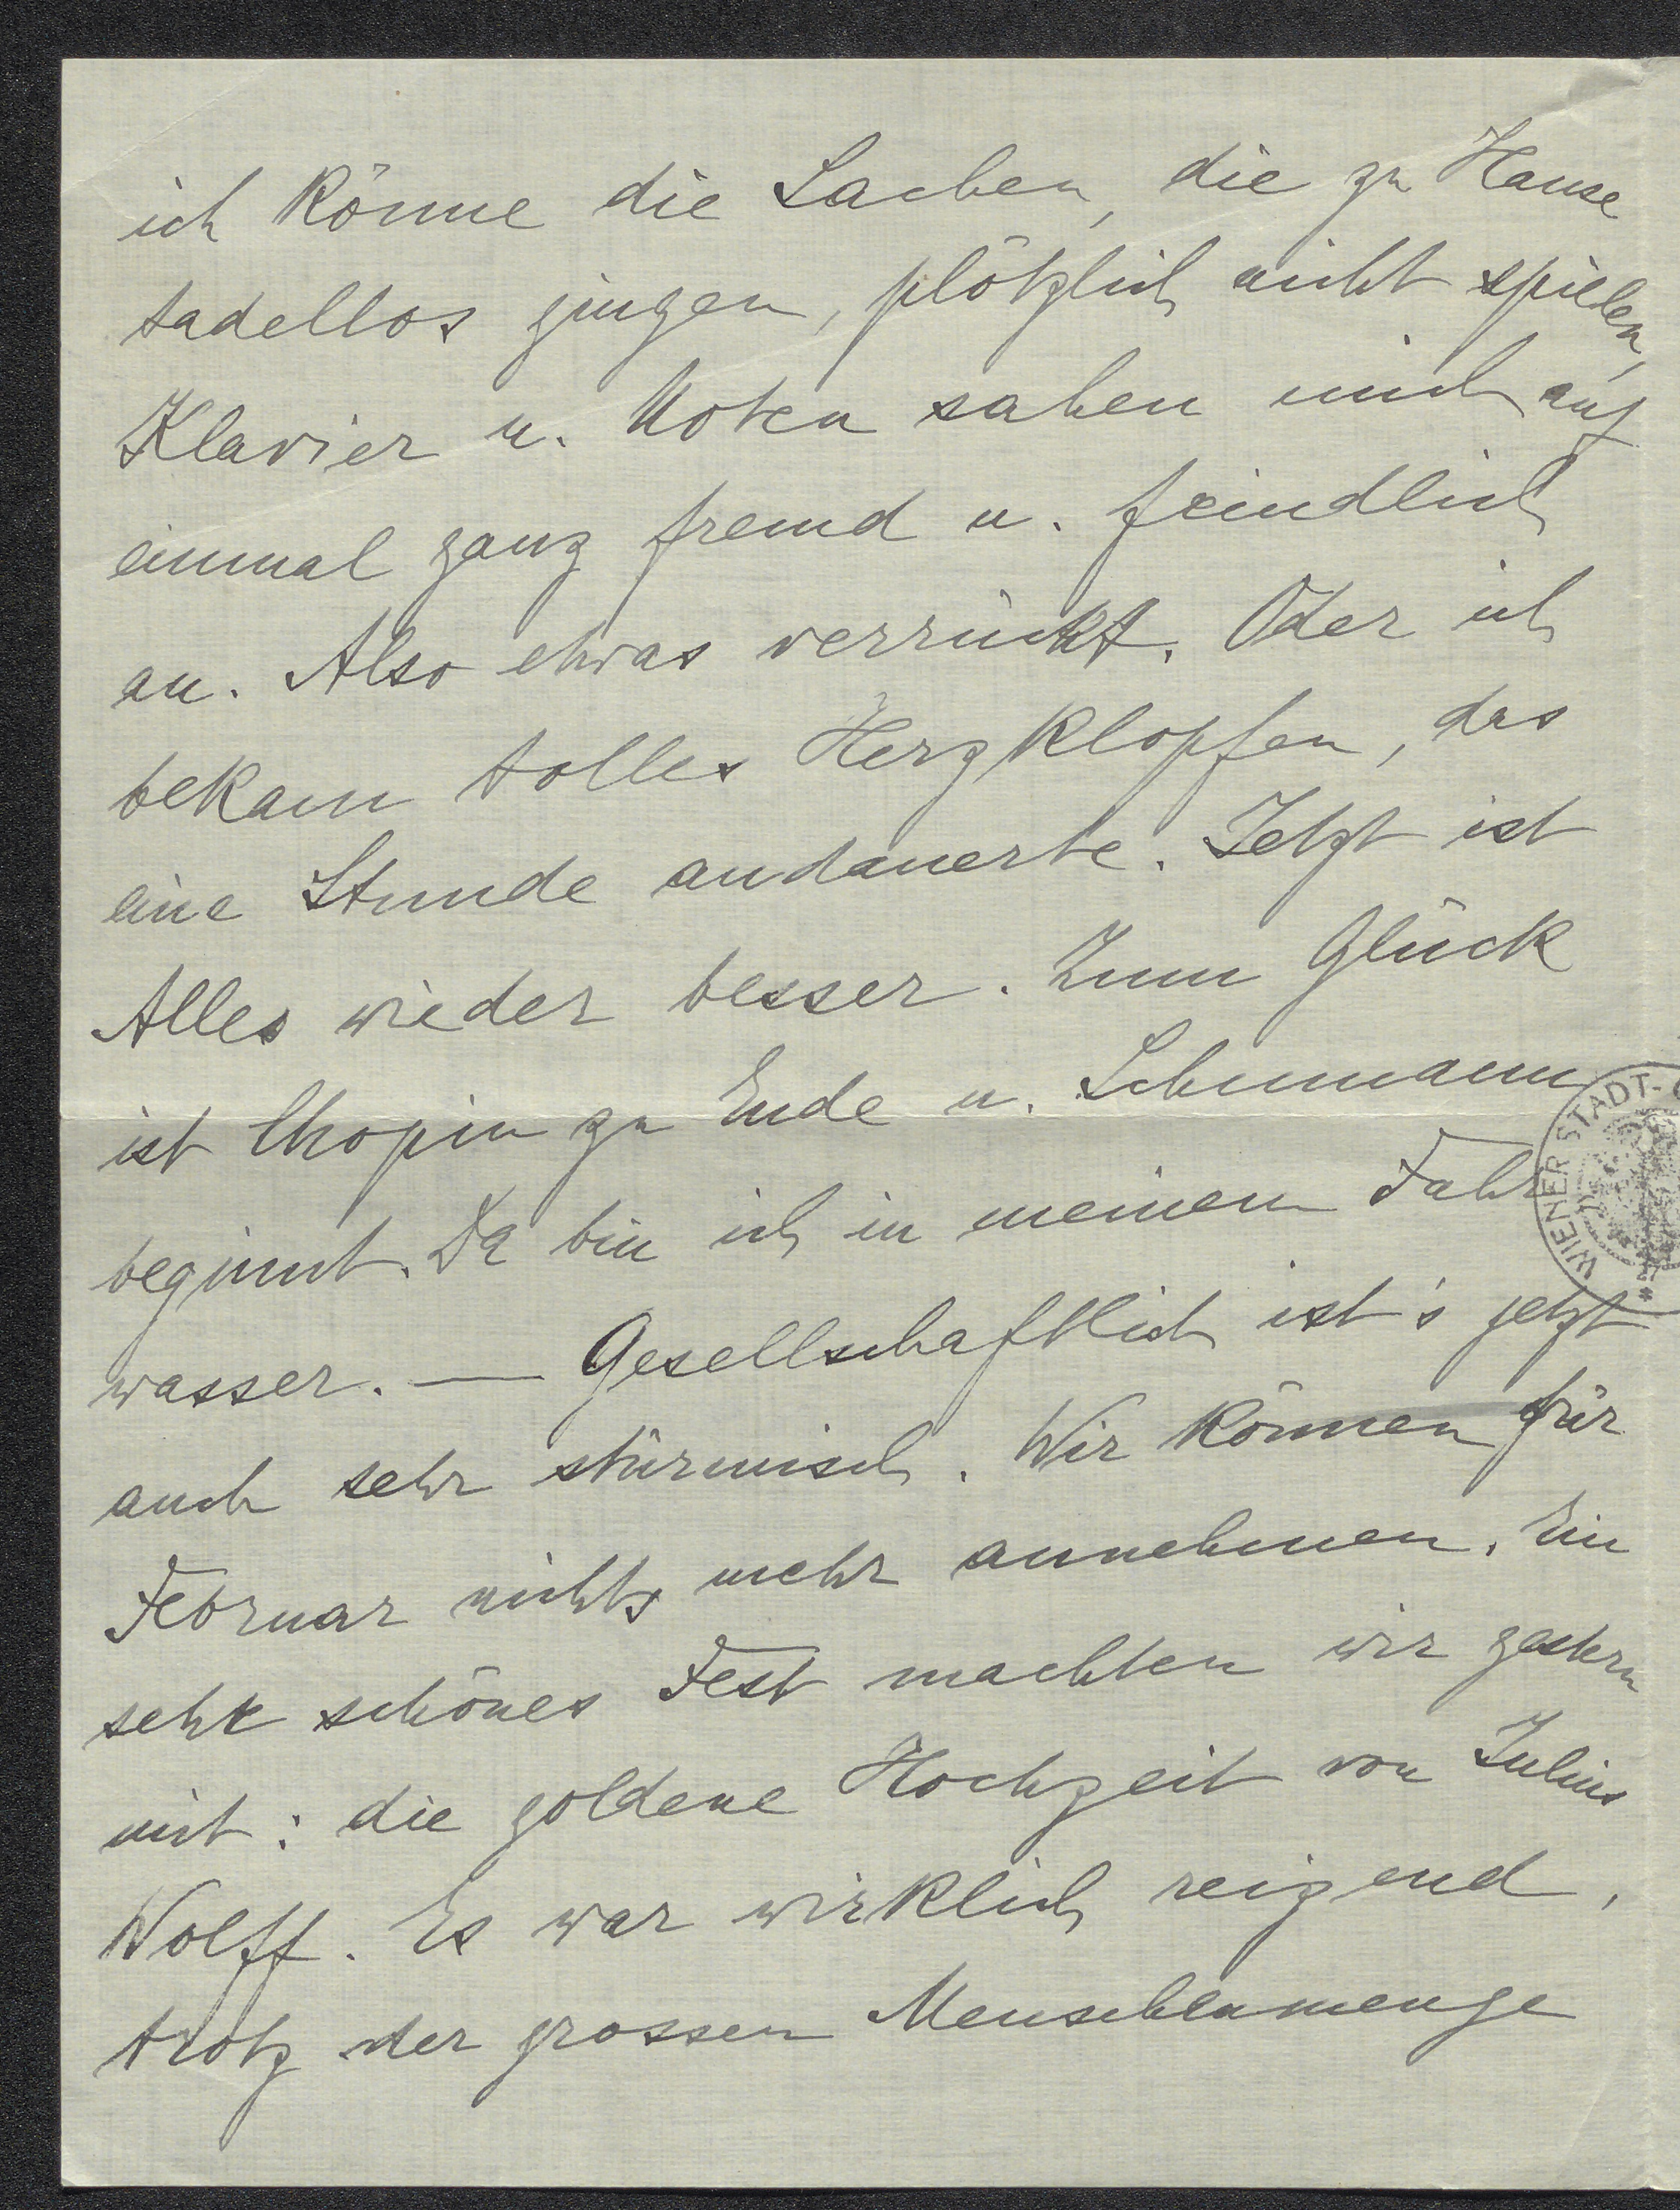 ich könne die Sachen, die zu Hause
tadellos gingen, plötzlich nicht spielen,
Klavier u. Noten sahen mich auf
einmal ganz fremd u. feindlich
an. Also etwas verrückt. Oder ich
bekam tolles Herzklopfen, das
eine Stunde andauerte. Jetzt ist
Alles wieder besser. Zum Glück
ist Chopin zu Ende u. Schumann
beginnt. Da bin ich in meinem Fahr
wasser. — Gesellschaftlich ist's jetzt
auch sehr stürmisch. Wir können für
Februar nichts mehr annehmen. Ein
sehr schönes Fest machten wir gestern
mit: die goldene Hochzeit von Julius
Wolff. Es war wirklich reizend,
trotz der grossen Menschenmenge
WIENER STADT-